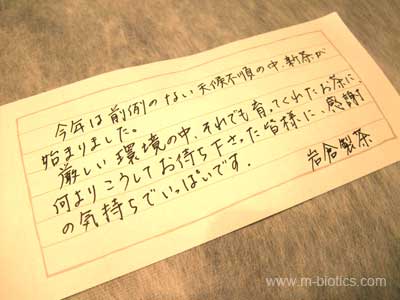 今年は前例のない天候不順の中、新茶が
始まりました。
厳しい環境の中、それでも育ってくれたお茶に、
何よりこうしてお待ち下さった皆様に、感謝
の気持ちでいっぱいです。
岩倉製茶
www.m-biotics.com